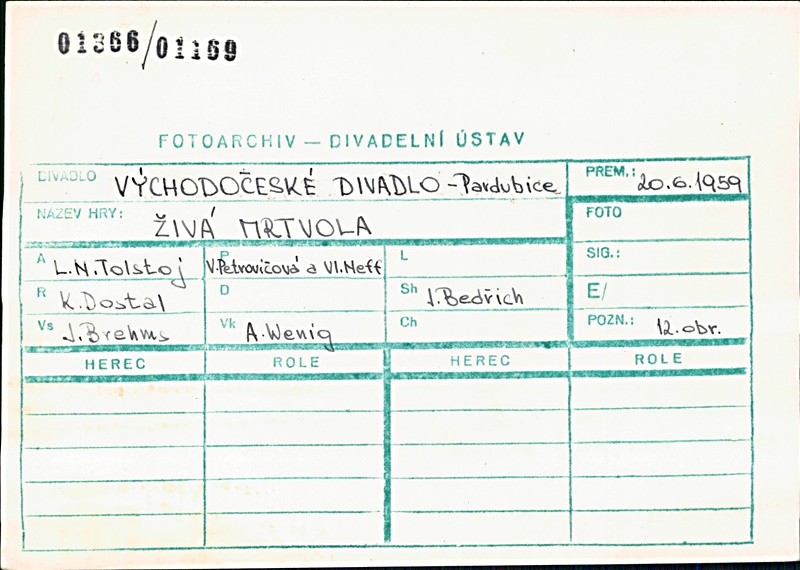 01366/01169
FOTOARCHIV — DIVADELNÍ ÚSTAV
DIVADLO VÝCHODOČESKÉ DIVADLO - Pardubice PREM.: 20.6.1959
NÁZEV HRY: ŽIVÁ MRTVOLA FOTO
A L.N.Tolstoj P V.Petrovičová a Vl.Neff L SIG.:
R K.Dostal D Sh J.Bedřich E/
Vs J.Brehms Vk A.Wenig Ch POZN.: 12.obr.
HEREC ROLE HEREC ROLE